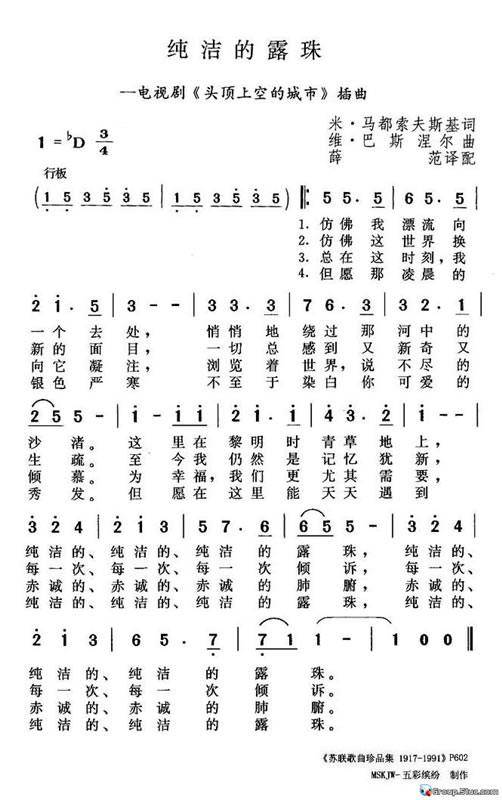 纯洁的露珠
—电视剧《头顶上空的城市》插曲
1=♭D 3/4
米·马都索夫斯基词
维·巴斯涅尔曲
薛范译配
行板
( 1 5 3 5 3 5 | 1 5 3 5 3 5 ) ‖: 5 5 . 5 | 6 5 . 5 |
1. 仿佛我漂流向
2. 仿佛这世界换
3. 总在这时刻,我
4. 但愿那凌晨的
2 1 . 5 | 3 - 3 | 3 3 . 3 | 7 6 . 3 | 3 2 . 1 |
一个去处,悄悄地绕过那河中的
新的面目,一切总感到又新奇又
向它凝注,浏览着世界,说不尽的
银色严寒不至于染白你可爱的
2 5 5 | 5 - 1 | 1 1 1 | 2 2 . 1 | 4 3 . 1 | 2 - - |
沙渚。这里在黎明时青草地上,
生疏。至今我仍然是记忆犹新,
倾慕。为幸福,我们更尤其需要,
秀发。但愿在这里能天天遇到
3 2 4 | 2 1 3 | 5 7 . 6 | 6 5 5 | 5 - - | 3 2 4 |
纯洁的、纯洁的露珠,纯洁的、
每一次、每一次倾诉,每一次、
赤诚的、赤诚的肺腑,赤诚的、
纯洁的、纯洁的露珠,纯洁的、
2 1 3 | 6 5 . 7 | 7 1 1 | 1 - - | 1 0 0 :‖
纯洁的露珠。
每一次倾诉。
赤诚的肺腑。
纯洁的露珠。
《苏联歌曲珍品集 1917-1991》P602
MSKJW-五彩缤纷 制作
Group.Stor.Com